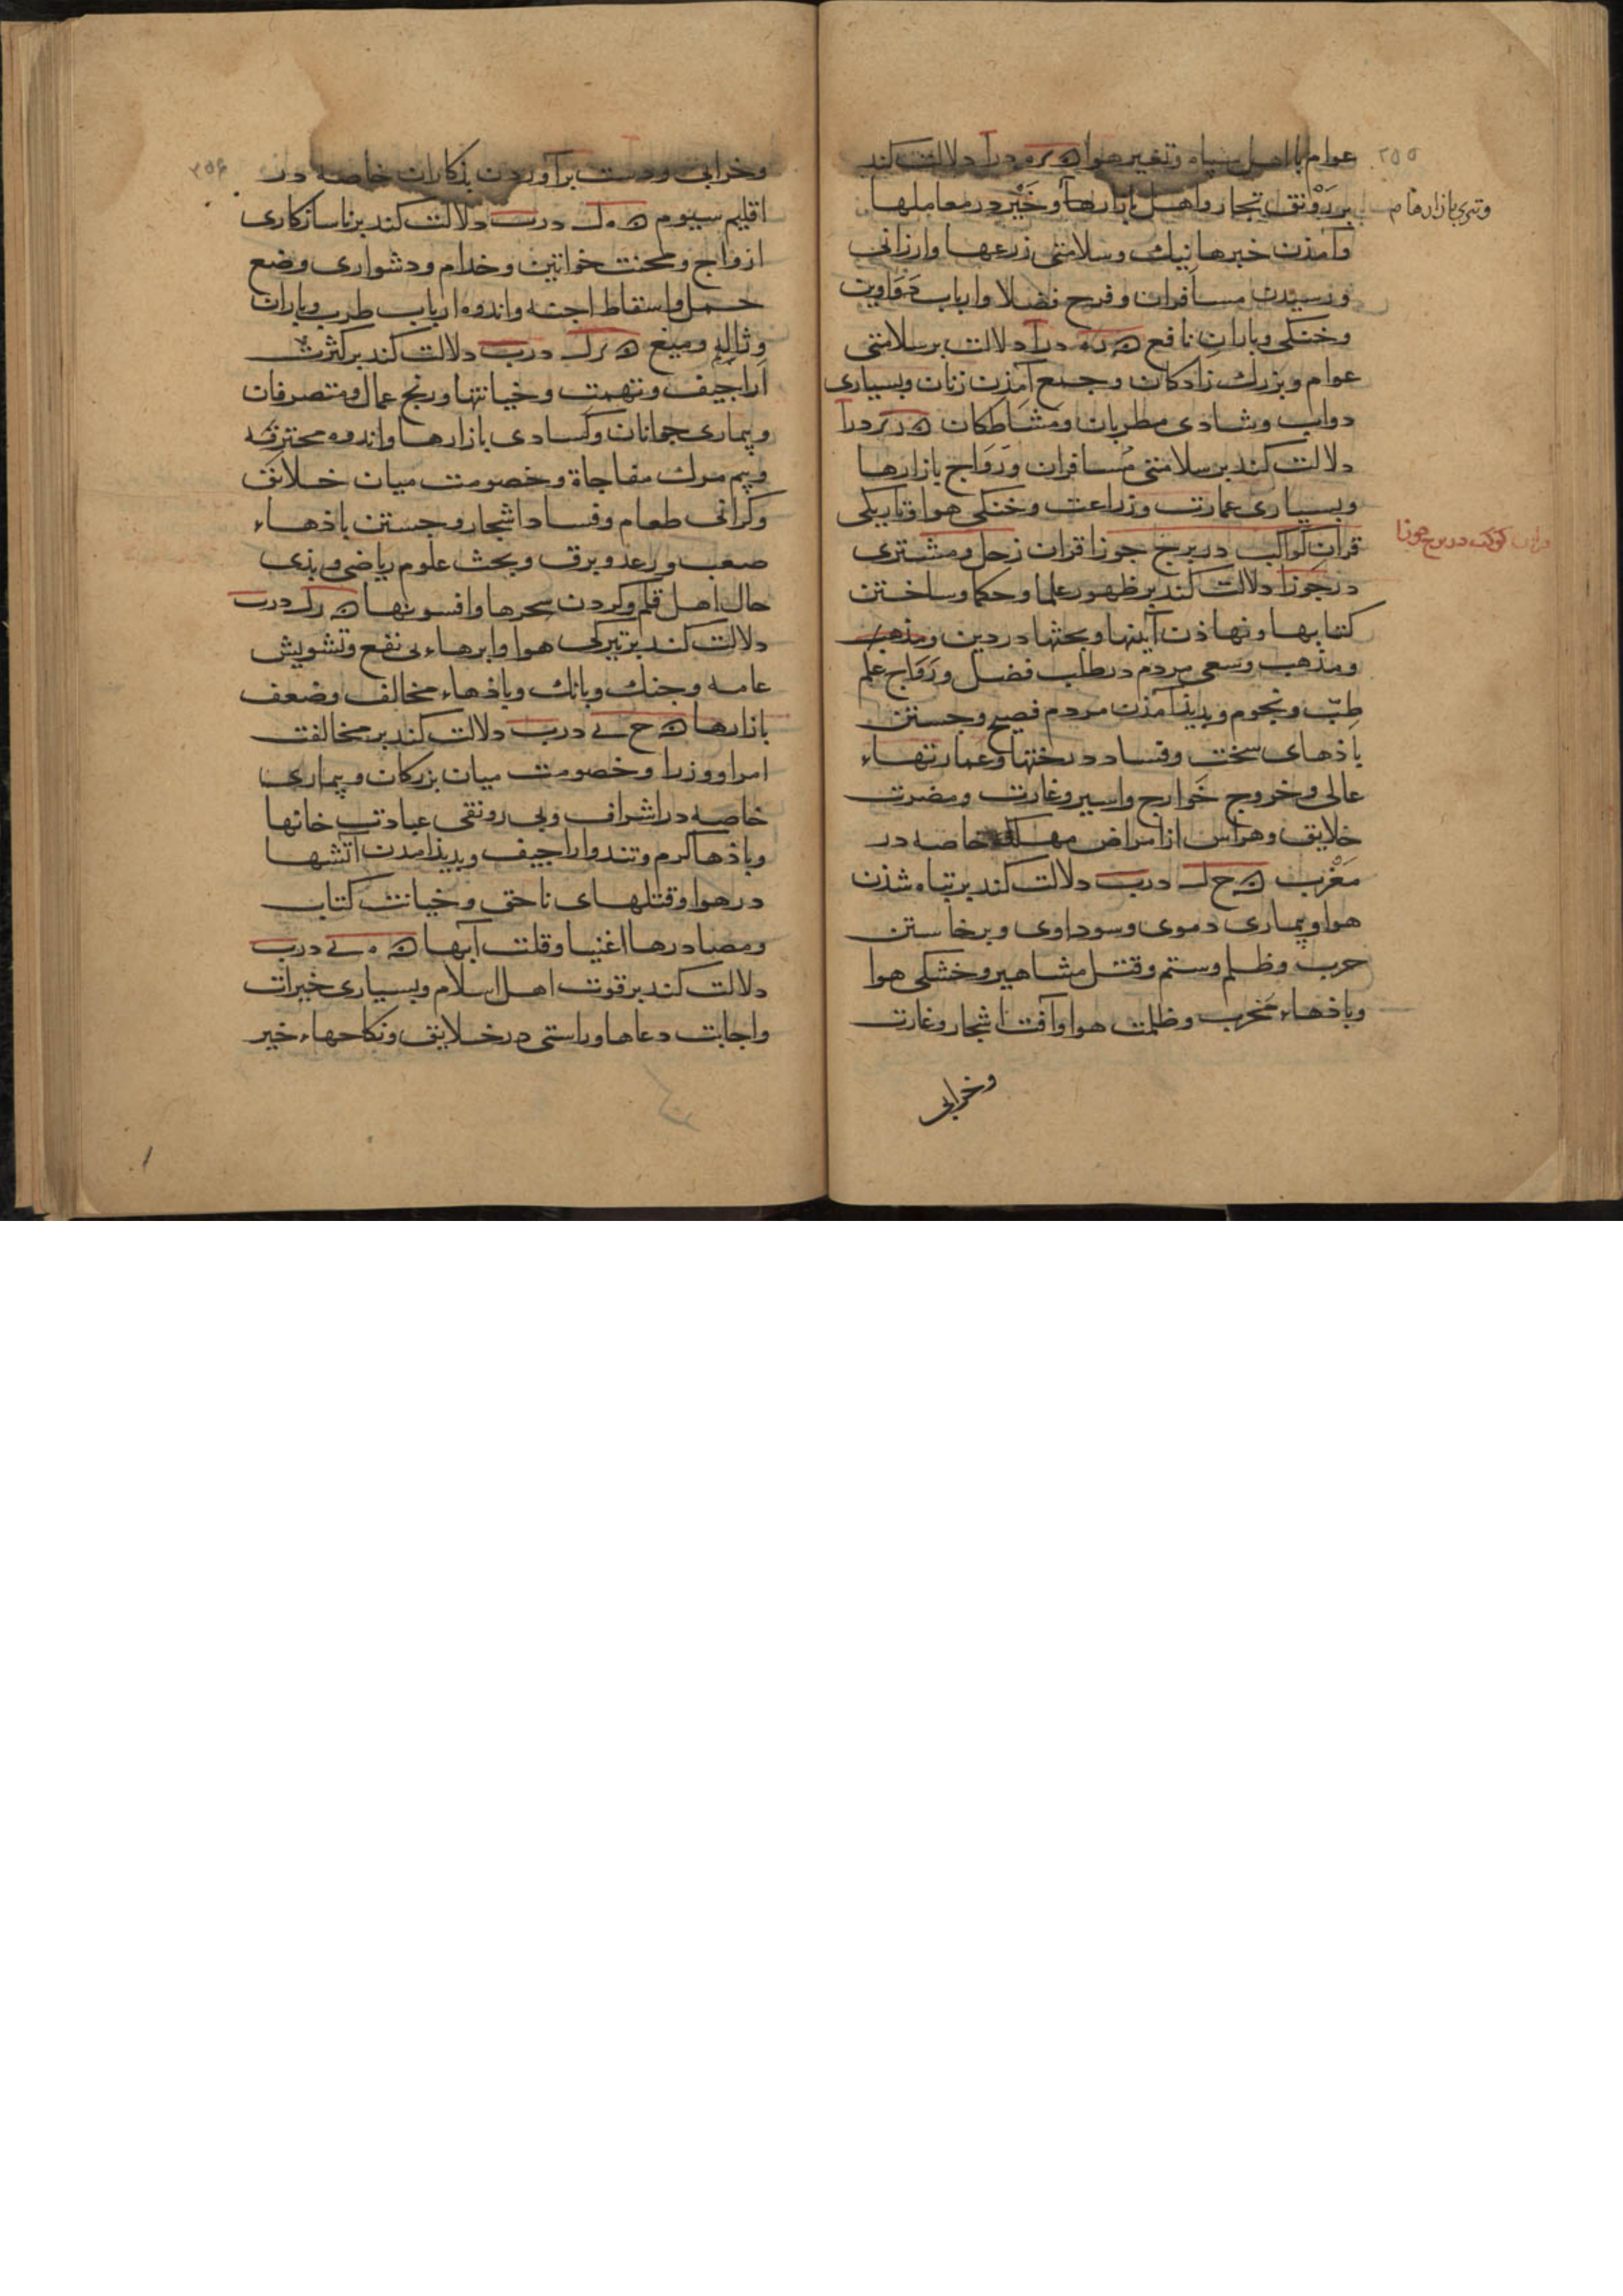 ۲۵۵
عوام با اهل سپاه و تغیر هوا ه ره در آ دلالت کند
بر رَوْنق تجار و اهل بازارها و خَیْر در معاملها
و تیزی بازارها م
و آمذن خبرها نیك و سلامتی زرعها و ارزانی
و رسیدن مسافران و فرح فضلا و ارباب دَوَاوین
و خنکی و باران نافع ه د در آ دلالت بر سلامتی
عوام و بزرك زادکان و جمع آمذن زنان و بسیاری
دواب و شادی مطربان و مشاطکان ه د در آ
دلالت کند بر سلامتی مُسافران و رَوَاج بازارها
و بسیاری عمارت و زراعت و خنکی هوا و تاریکی
قران کواکب در برج جوزا قران زحل و مشتری
قران کوکب در برج جوزا
در جوزا دلالت کند بر ظهور علما و حکما و ساختن
کتابها و نهاذن آینها و بحثها در دین و مذهب
و مذهب و سعی مردم در طلب فضل و رَوَاج علم
طِبّ و نجوم و پدیذ آمذن مردم فصیح و جستن
باذهای سخت و فساد درختها و عمارتهاء
عالی و خروج خَوارج و اسیر و غارت و مضرت
خلایق و هراس از امراض مهلکه خاصه در
مَغْرب ه ح ك در ب دلالت کند بر تباه شذن
هوا و بیماری دموی و سوداوی و برخاستن
حرب و ظلم و ستم و قتل مشاهیر و خشکی هوا
و باذهاء مخرب و ظلمت هوا و آفت اشجار و غارت
و خرابی
۲۵۶
و خرابی و دست برآوردن بذکاران خاصه در
اقلیم سیوم ه ه ك در ب دلالت کند بر ناسازکاری
ازواج و محنت خواتین و خدام و دشواری وضع
حمل و اسقاط اجنه و اندوه ارباب طرب و باران
و ژاله و میغ ه ر ك در ب دلالت کند بر کثرت
اَراجیف و تهمت و خیانتها و رنج عمال و متصرفان
و بیماری جوانان و کسادی بازارها و اندوه محترفه
و بیم مرك مفاجاة و خصومت میان خلائق
و کرانی طعام و فساد اشجار و جستن باذهاء
صعب و رعد و برق و بحث علوم ریاضی و بذی
حال اهل قلم و کردن سحرها و افسونها ه ر ك در ب
دلالت کند بر تیرکی هوا و ابرهاء بی نفع و تشویش
عامه و جنك و بانك و باذهاء مخالف و ضعف
بازارها ه ح ی در ب دلالت کند بر مخالفت
امرا و وزرا و خصومت میان بزرکان و بیماری
خاصه در اشراف و بی رونقی عبادت خانها
و باذها کرم و تند و اراجیف و پدیذ امدن آتشها
در هوا و قتلهای ناحق و خیانت کتاب
و مصادرها اغنیا و قلت آبها ه ه ی در ب
دلالت کند بر قوت اهل اسلام و بسیاری خیرات
و اجابت دعاها و راستی در خلایق و نکاحهاء خیر